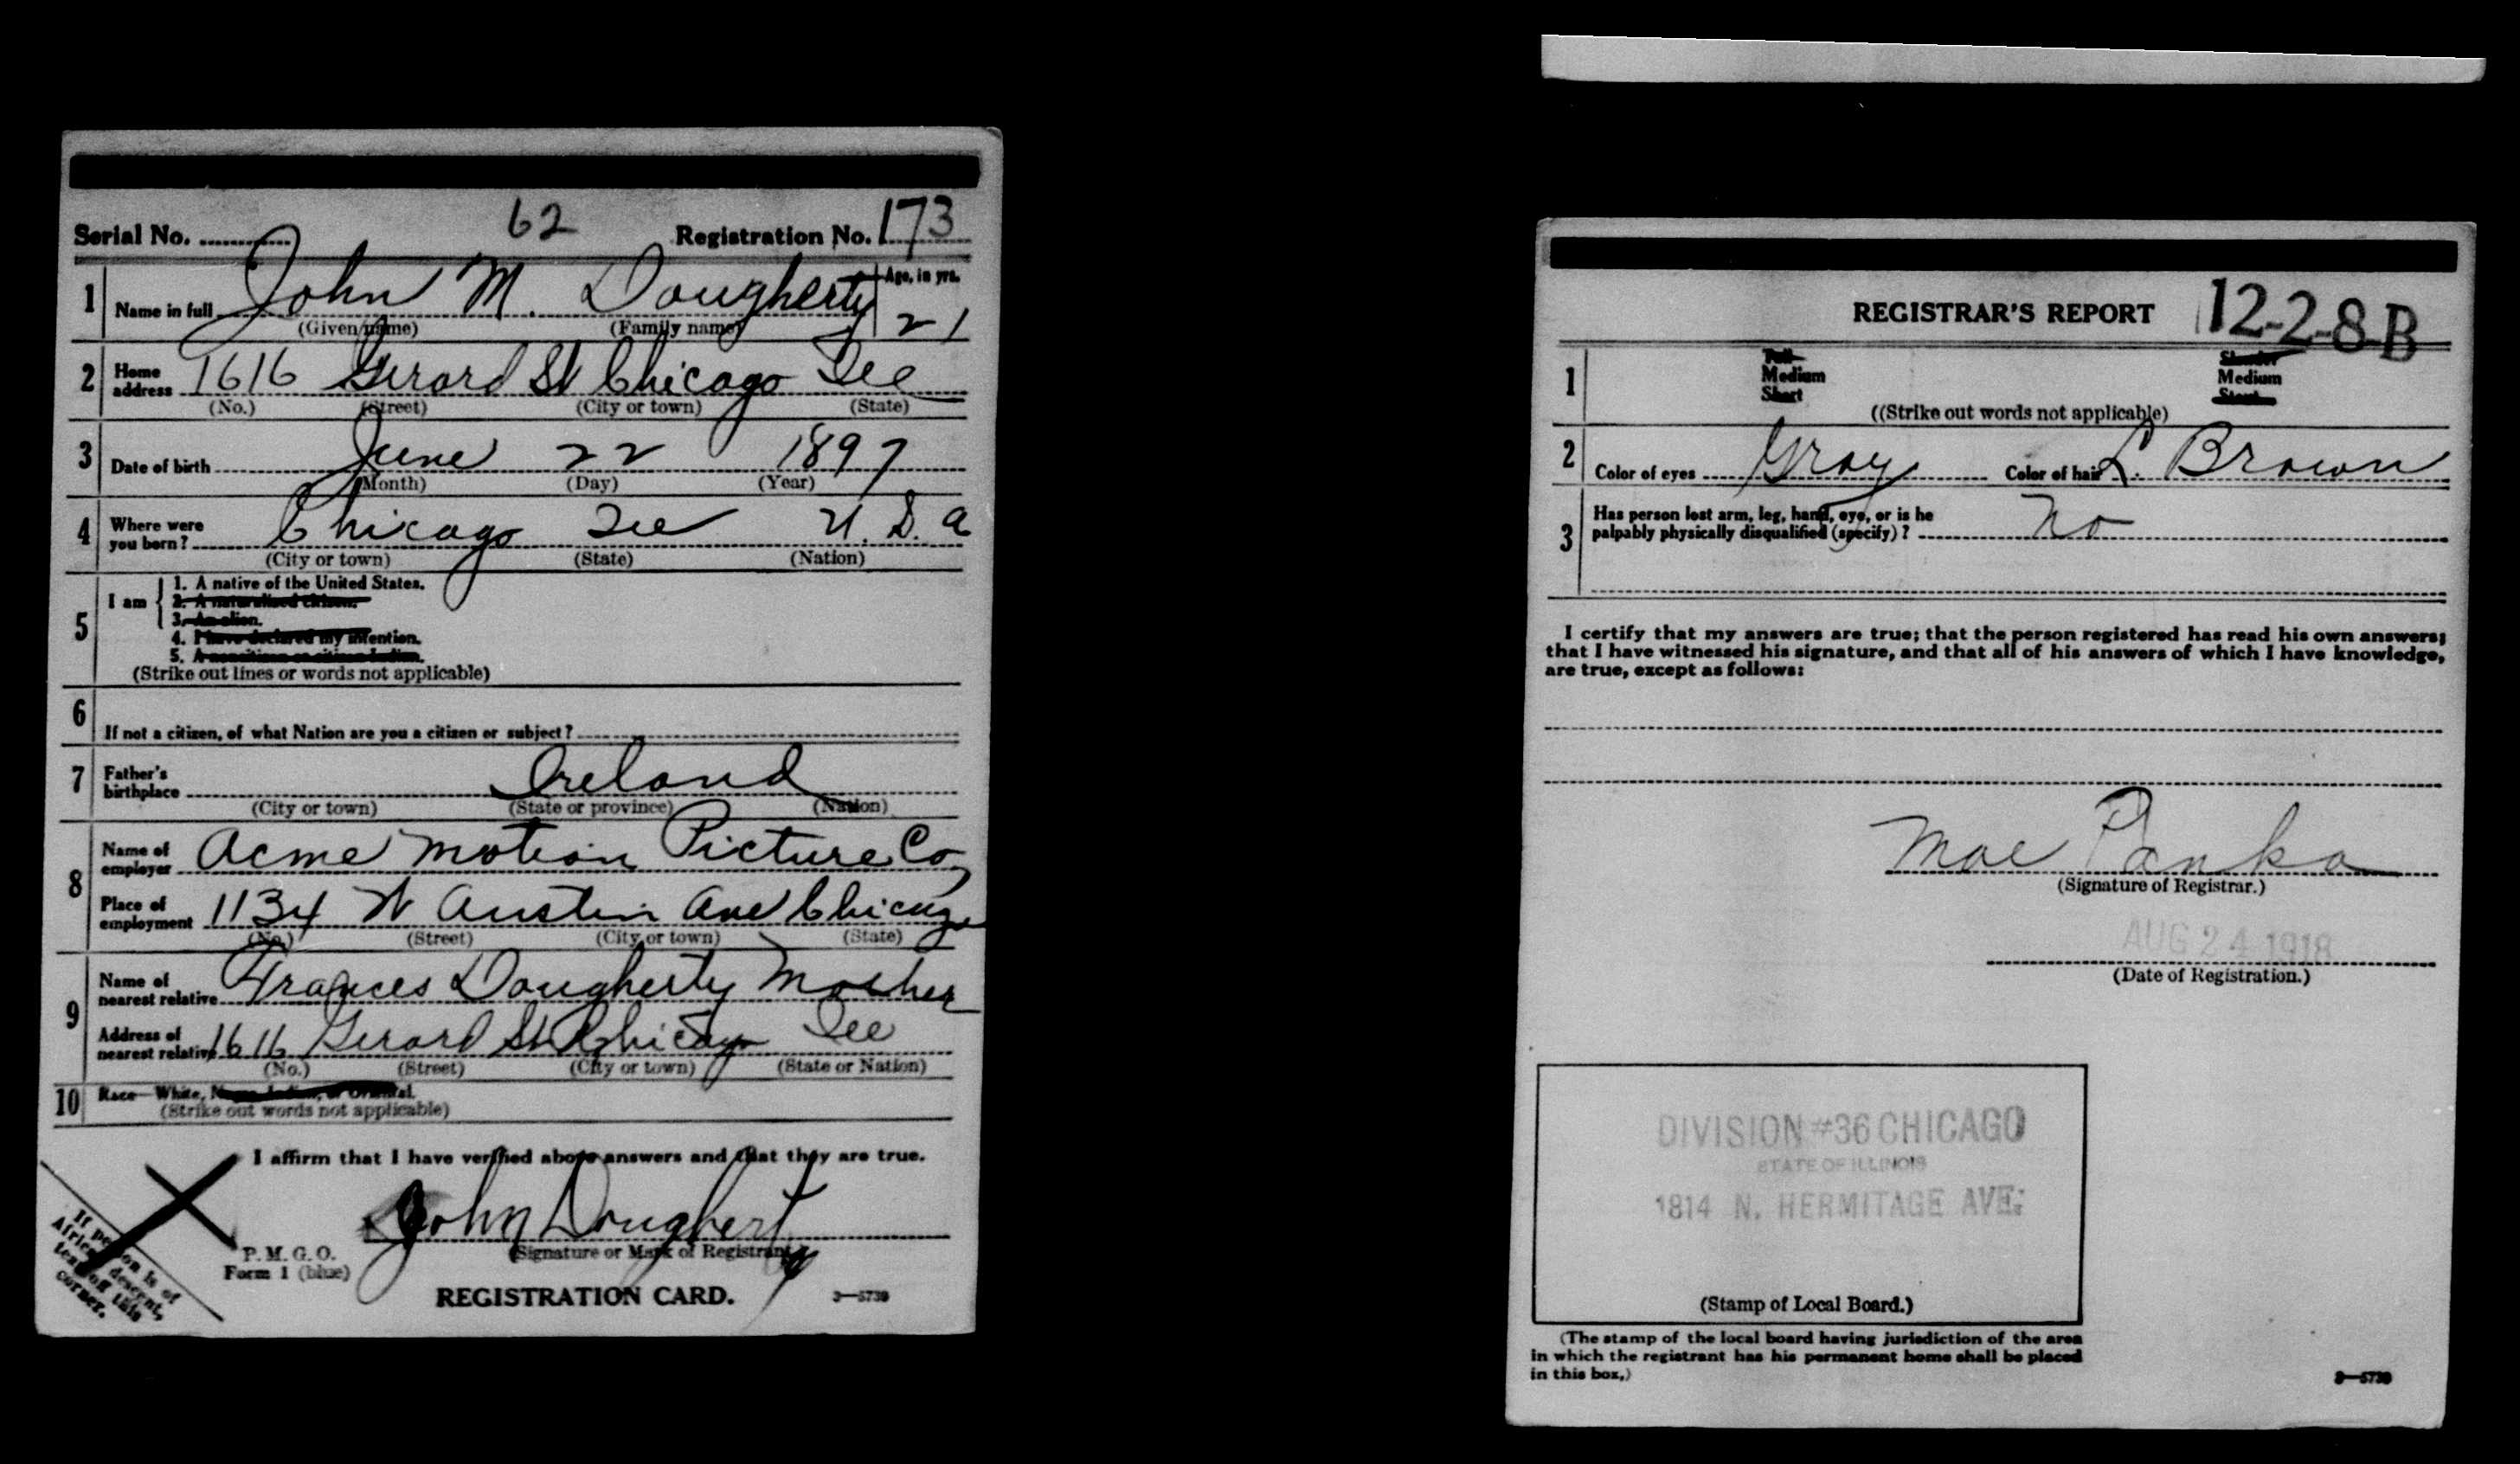 Serial No. 62 Registration No. 173
1 Name in full John M. Dougherty Age, in yrs. 21
(Given name) (Family name)
2 Home address 1616 Girard St Chicago Ill
(No.) (Street) (City or town) (State)
3 Date of birth June 22 1897
(Month) (Day) (Year)
4 Where were you born? Chicago Ill U. S. A
(City or town) (State) (Nation)
5 I am
1. A native of the United States.
2. A naturalized citizen.
3. An alien.
4. I have declared my intention.
5. A noncitizen or citizen Indian.
(Strike out lines or words not applicable)
6 If not a citizen, of what Nation are you a citizen or subject?
7 Father's birthplace Ireland
(City or town) (State or province) (Nation)
8 Name of employer Acme Motion Picture Co
Place of employment 1134 W Austin Ave Chicago
(No.) (Street) (City or town) (State)
9 Name of nearest relative Frances Dougherty Mother
Address of nearest relative 1616 Girard St Chicago Ill
(No.) (Street) (City or town) (State or Nation)
10 Race—White, Negro, Indian, or Oriental.
(Strike out words not applicable)
I affirm that I have verified above answers and that they are true.
John Dougherty
(Signature or Mark of Registrant.)
If person is of
African descent,
tear off this
corner.
P. M. G. O.
Form 1 (blue)
REGISTRATION CARD. 3—5739
REGISTRAR'S REPORT 12-2-8-B
1 Tall Slender
Medium Medium
Short Stout
((Strike out words not applicable)
2 Color of eyes Gray Color of hair L. Brown
3 Has person lost arm, leg, hand, eye, or is he
palpably physically disqualified (specify)? No
I certify that my answers are true; that the person registered has read his own answers;
that I have witnessed his signature, and that all of his answers of which I have knowledge,
are true, except as follows:
Mae Panka
(Signature of Registrar.)
AUG 24 1918
(Date of Registration.)
DIVISION #36 CHICAGO
STATE OF ILLINOIS
1814 N. HERMITAGE AVE.
(Stamp of Local Board.)
(The stamp of the local board having jurisdiction of the area
in which the registrant has his permanent home shall be placed
in this box.)
3—5739